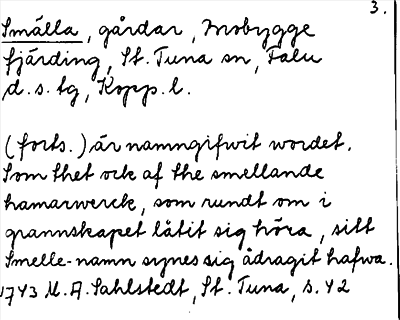 3.
Smälla, gårdar, Mobygge
fjärding, St. Tuna sn, Falu
d.s. tg, Kopp. l.
(forts.) är namngifwit wordet.
Som thet ock af the smellande
hamarwerck, som rundt om i
grannskapet lätit sig höra, sitt
Smelle-namn synes sig ådragit hafwa.
1743 M. A. Sahlstedt, St. Tuna, s. 42